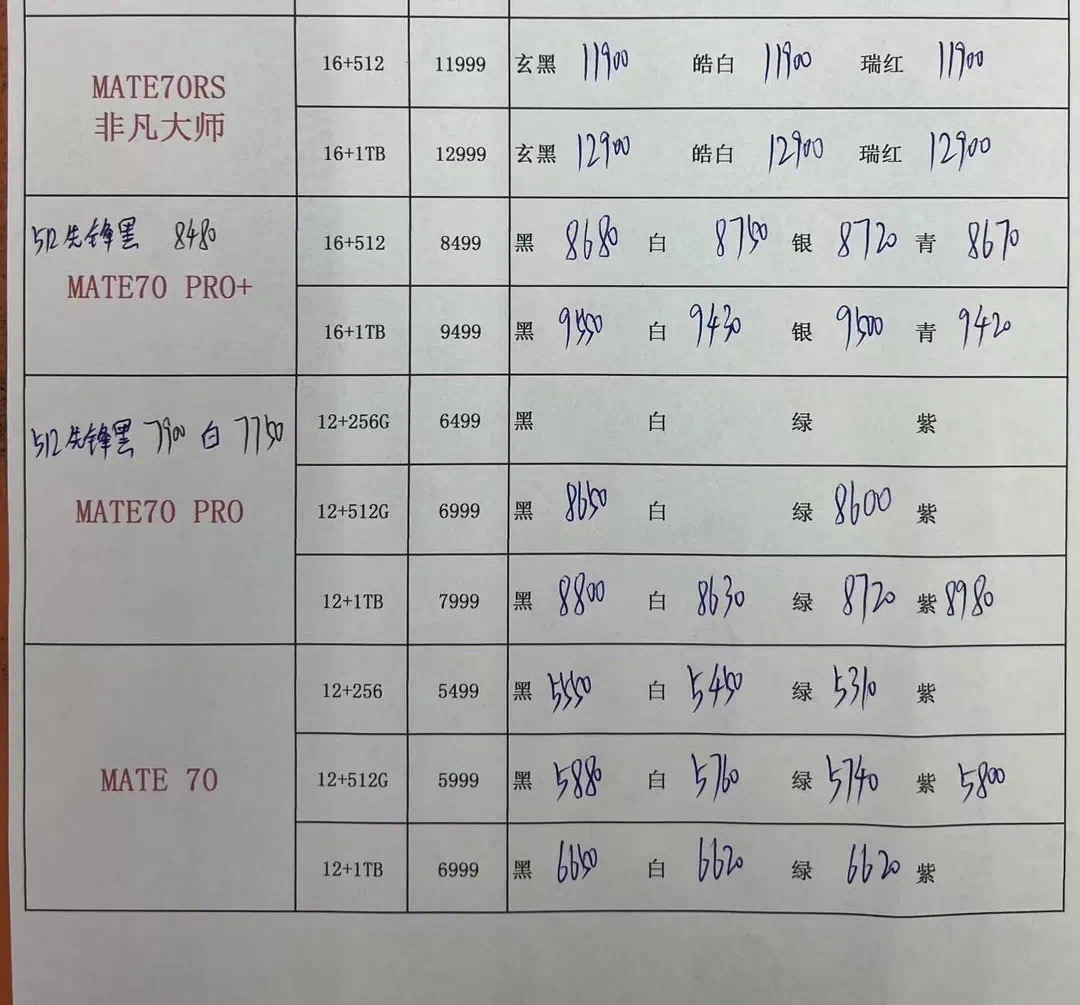 MATE70RS
非凡大师
16+512 11999 玄黑 11900 皓白 11900 瑞红 11900
16+1TB 12999 玄黑 12900 皓白 12900 瑞红 12900
512先锋黑 8480
MATE70 PRO+
16+512 8499 黑 8680 白 8750 银 8720 青 8670
16+1TB 9499 黑 9550 白 9430 银 9500 青 9420
512先锋黑 7900 白 7750
MATE70 PRO
12+256G 6499 黑 白 绿 紫
12+512G 6999 黑 8650 白 绿 8600 紫
12+1TB 7999 黑 8800 白 8630 绿 8720 紫 8980
MATE 70
12+256 5499 黑 5550 白 5450 绿 5310 紫
12+512G 5999 黑 5880 白 5760 绿 5740 紫 5800
12+1TB 6999 黑 6650 白 6620 绿 6620 紫